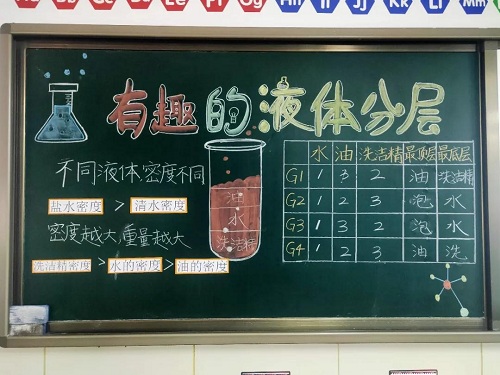 Gg Hh Ii Jj Kk Ll Mm
有趣的液体分层
不同液体密度不同
盐水密度 > 清水密度
密度越大,重量越大
洗洁精密度 > 水的密度 > 油的密度
油
水
洗洁精
水 油 洗洁精 最顶层 最底层
G1 1 3 2 油 洗洁精
G2 1 2 3 泡 水
G3 1 3 2 泡 水
G4 1 2 3 油 洗